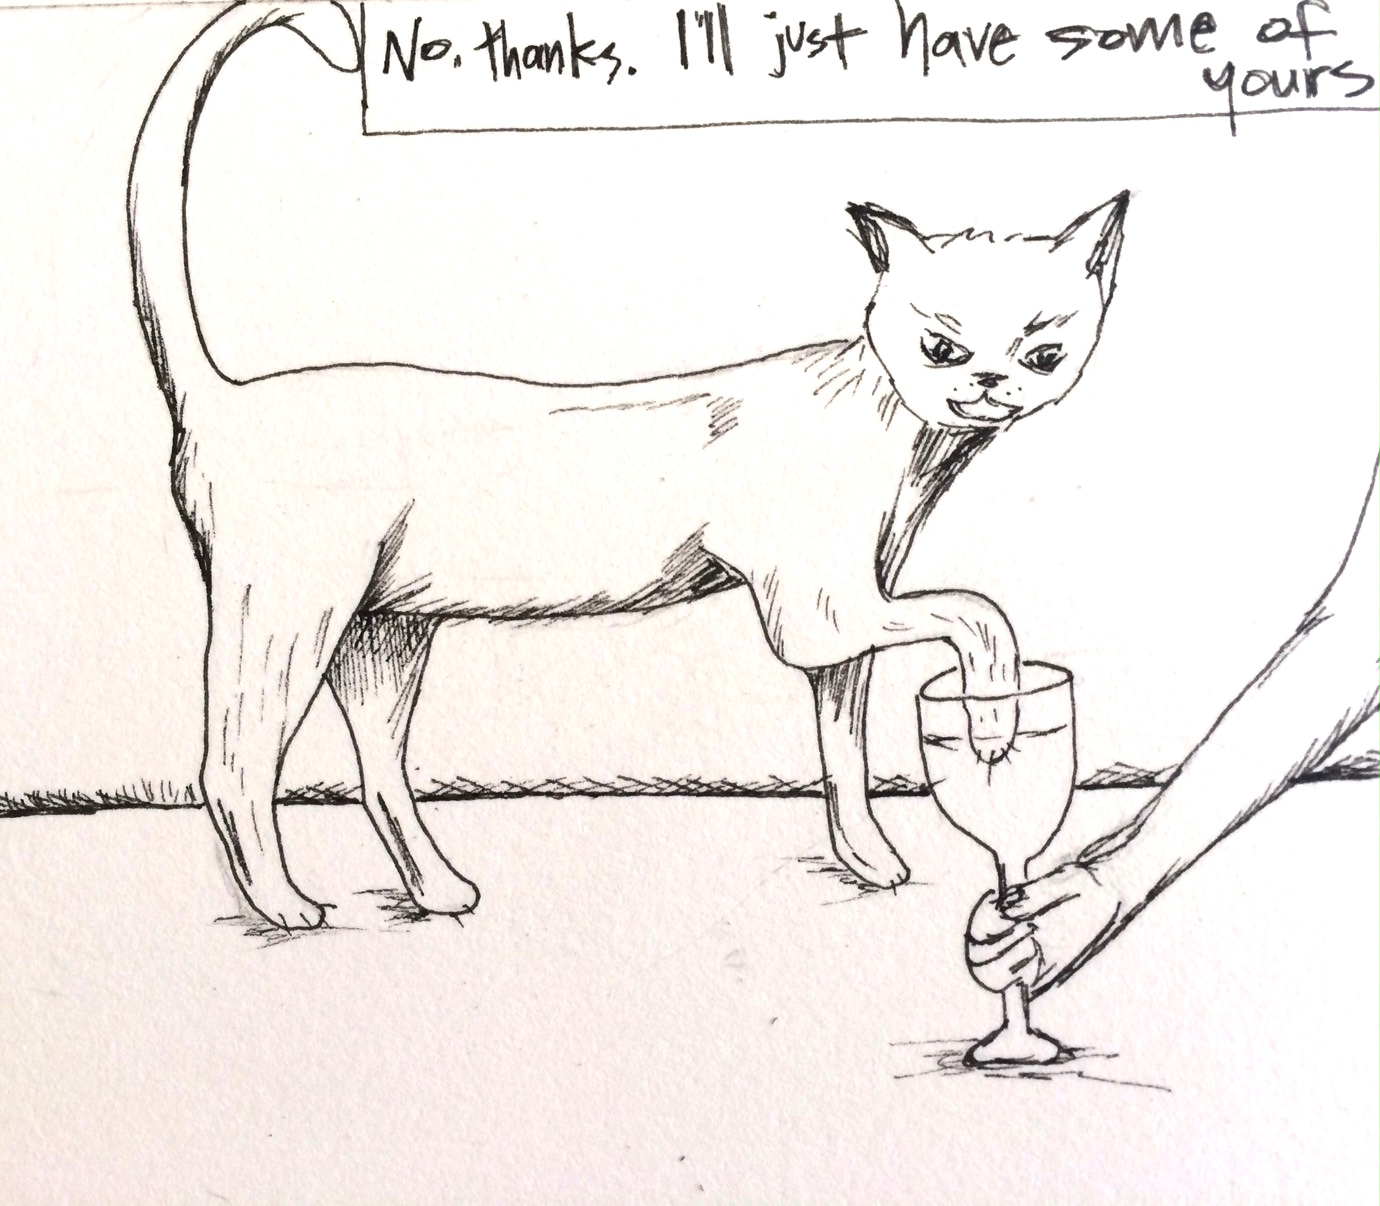 No, thanks. I'll just have some of
yours